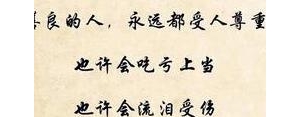 良的人，永远都受人尊重
也许会吃亏上当
也许会流泪受伤